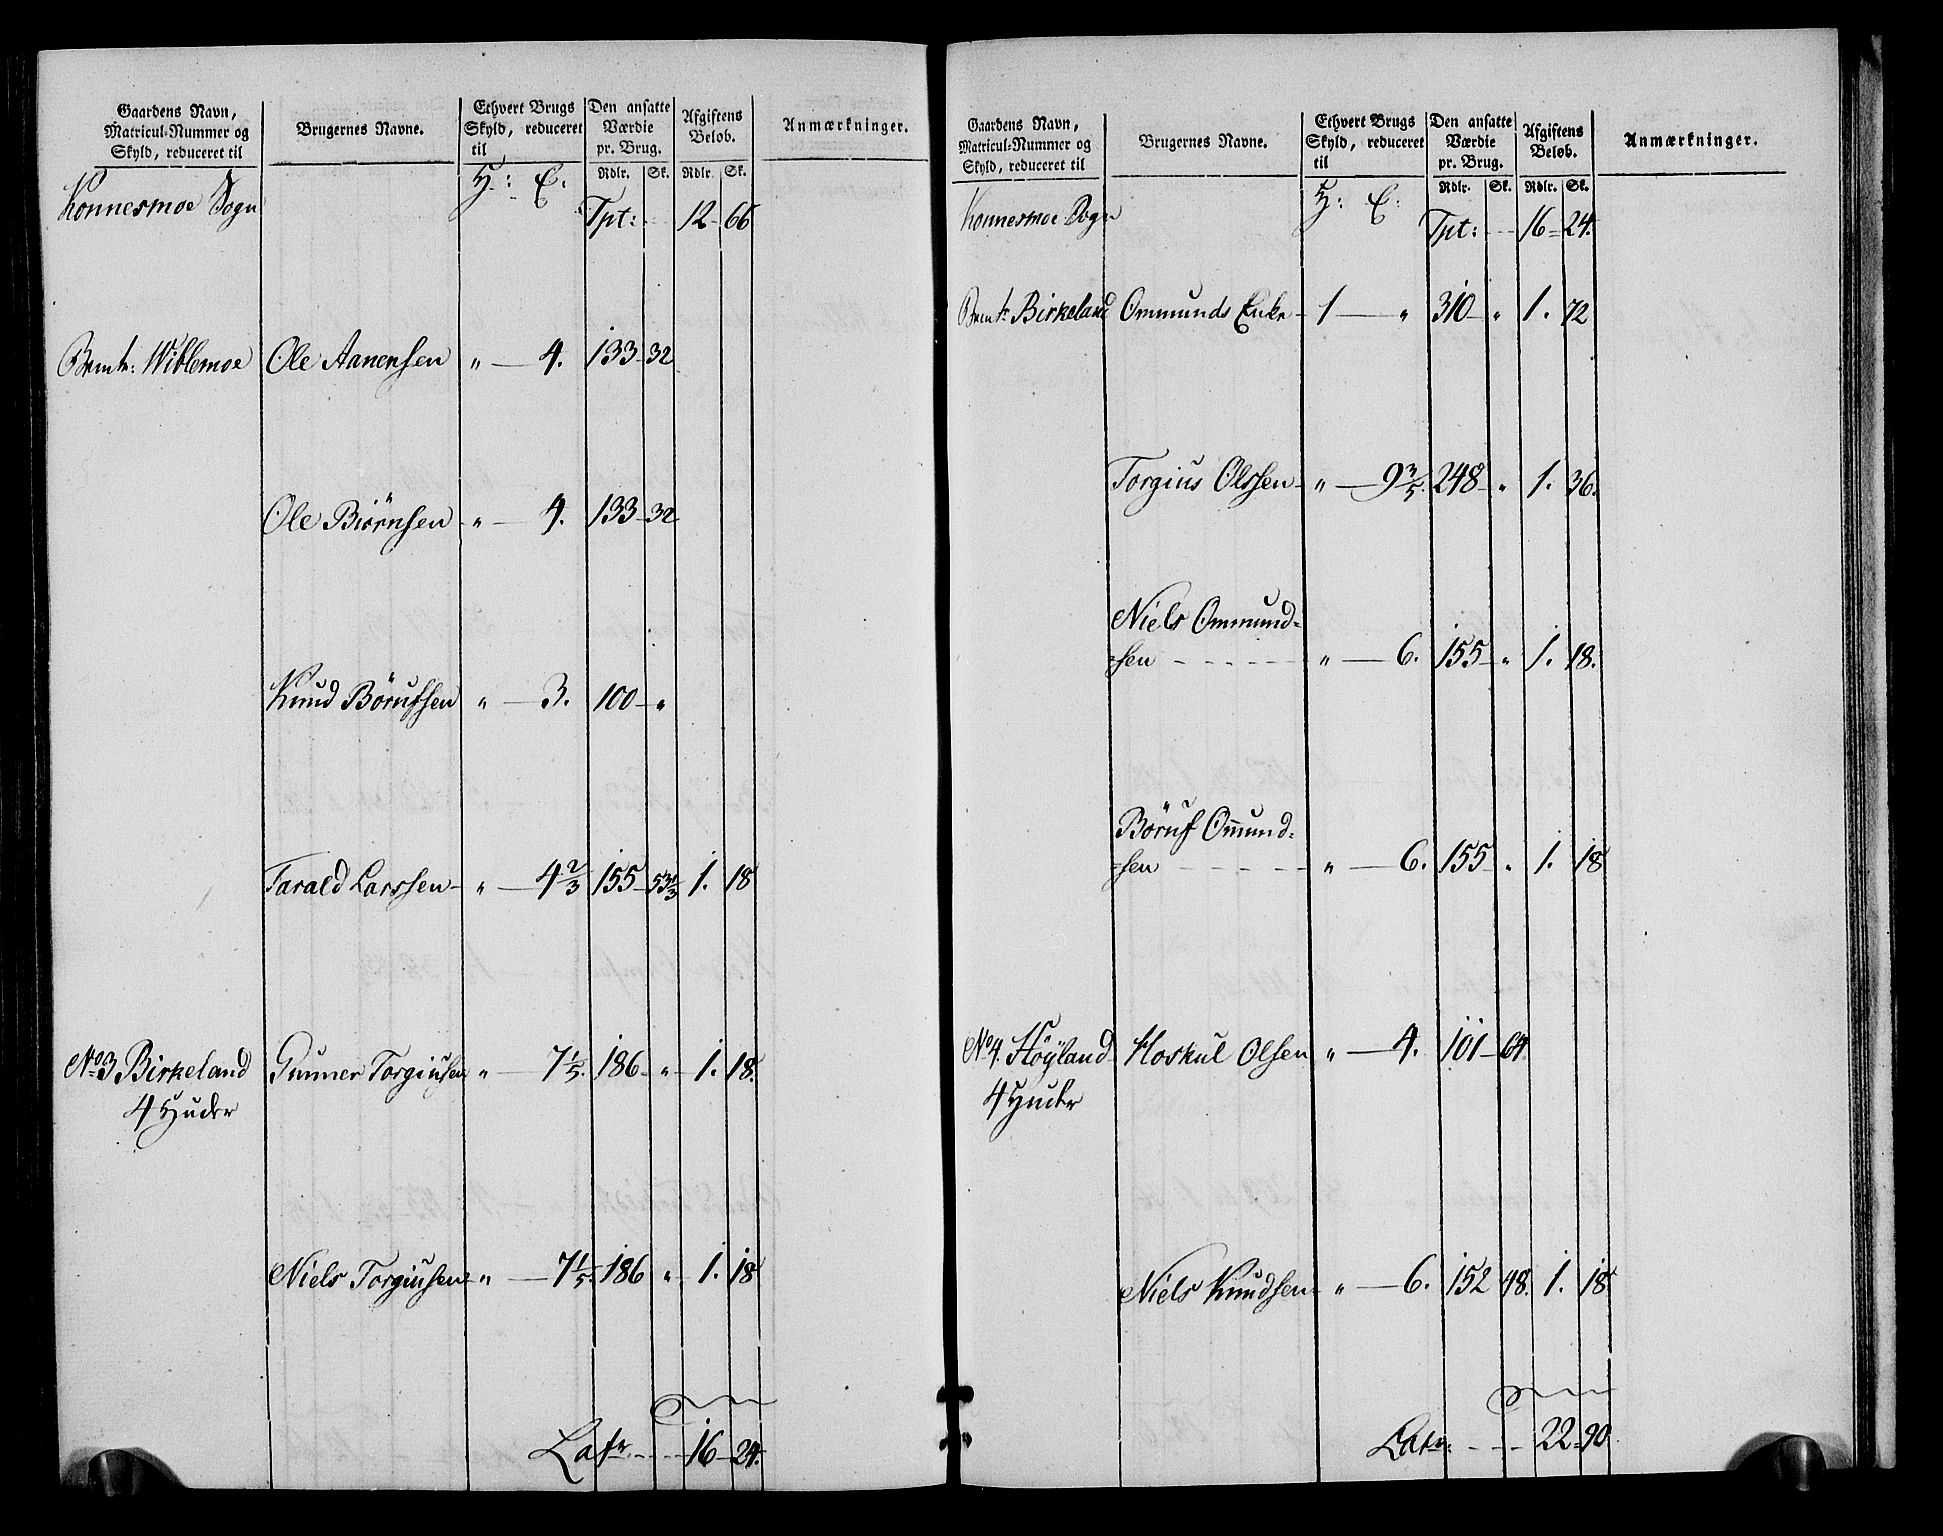 Gaardens Navn, Matricul-Nummer og Skyld, reduceret til | Brugernes Navne. | Ethvert Brugs Skyld, reduceret til | Den ansatte Værdie pr. Brug. | Afgiftens Beløb. | Anmærkninger.
H: E. | Rdlr. Sk. | Rdlr. Sk.
Konnesmoe Sogn Tpt: 12 66
Bemte: Wiblemoe Ole Aanensen " 4. 133 32
Ole Biørnsen " 4. 133 32
Knud Börufsen " 3. 100 "
Tarald Larssen " 4 2/3 155 53 1/3 1. 18
No 3 Birkeland Gunner Torgiusen " 7 1/5. 186 " 1. 18.
4 Huder
Niels Torgiusen " 7 1/5. 186 " 1. 18
Latr. 16 24.
Gaardens Navn, Matricul-Nummer og Skyld, reduceret til | Brugernes Navne. | Ethvert Brugs Skyld, reduceret til | Den ansatte Værdie pr. Brug. | Afgiftens Beløb. | Anmærkninger.
H: E: | Rdlr. Sk. | Rdlr. Sk.
Konnesmoe Sogn Tpt: 16 24.
Bemte Birkeland Ommunds Enke 1 " 310 " 1. 72
Torgius Olssen " 9 3/5. 248 " 1. 36.
Niels Ommund=
=sen " 6. 155 " 1. 18.
Böruf Om̄und=
=sen " 6. 155 " 1. 18
No 4. Höyland Hoskul Olsen " 4. 101 64.
4 Huder
Niels Knudsen " 6. 152 48. 1. 18
Latr: 22 90